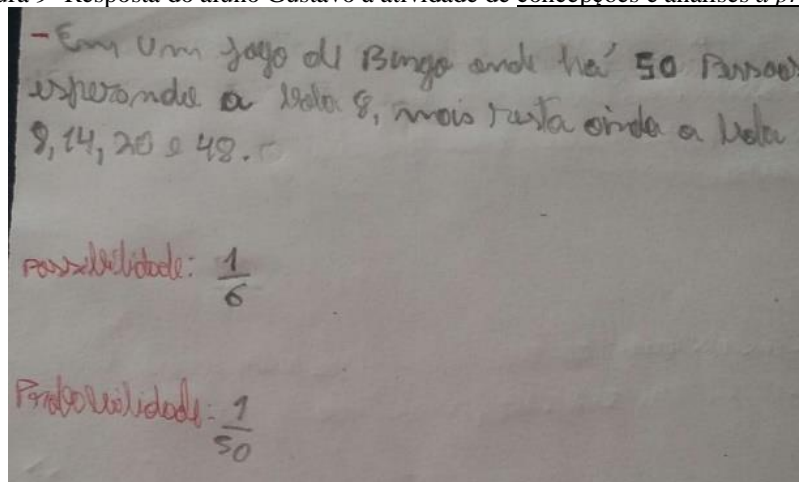 ura 9- Resposta do aluno Gustavo à atividade de concepções e análises a pr
- Em um jogo de Bingo onde há 50 Pessoas
esperando a bola 8, mais resta ainda a bola
9, 14, 20 e 48.
possibilidade: 1/6
Probabilidade: 1/50